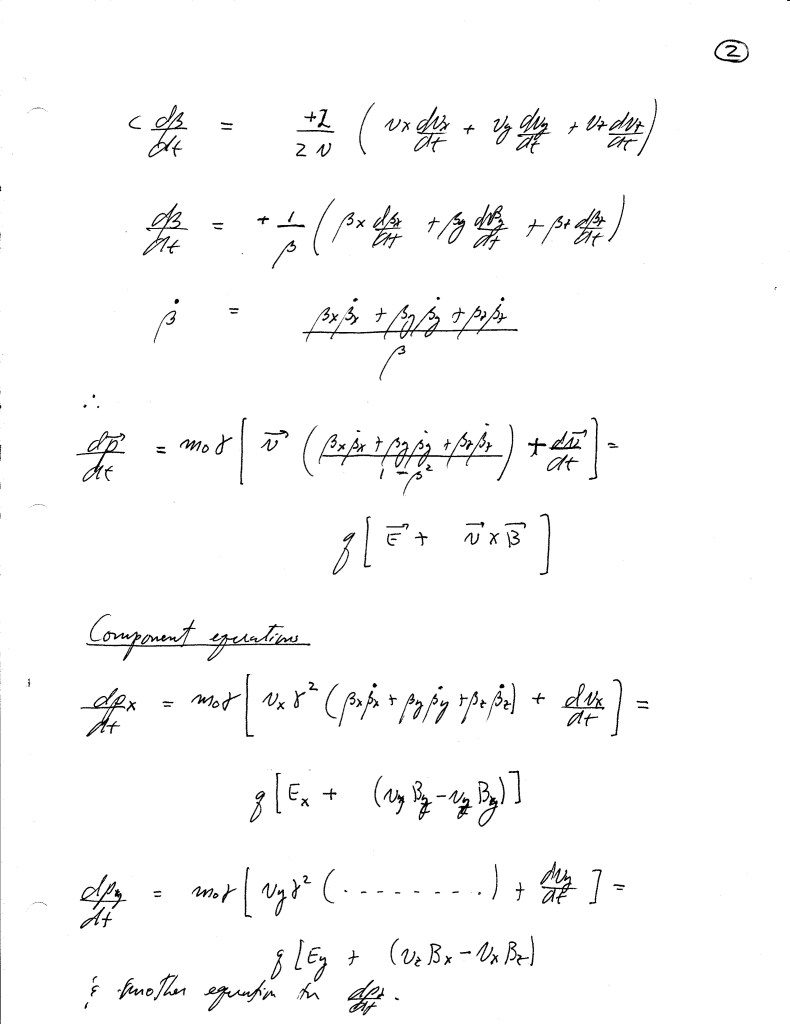 ②
c dβ/dt = +2/2v ( vx dvx/dt + vy dvy/dt + vz dvz/dt )
dβ/dt = + 1/β ( βx dβx/dt + βy dβy/dt + βz dβz/dt )
β̇ = βxβ̇x + βyβ̇y + βzβ̇z / β
∴
dp⃗/dt = m₀γ [ v⃗ ( βxβ̇x + βyβ̇y + βzβ̇z / 1 - β² ) + dv⃗/dt ] =
q [ E⃗ + v⃗ x B⃗ ]
Component equations
dpx/dt = m₀γ [ vx γ² ( βxβ̇x + βyβ̇y + βzβ̇z ) + dvx/dt ] =
q [ Ex + (vy Bz - vz By) ]
dpy/dt = m₀γ [ vy γ² ( . - - - - - - - . ) + dvy/dt ] =
q [ Ey + (vz Bx - vx Bz)
& another equation for dpz/dt.